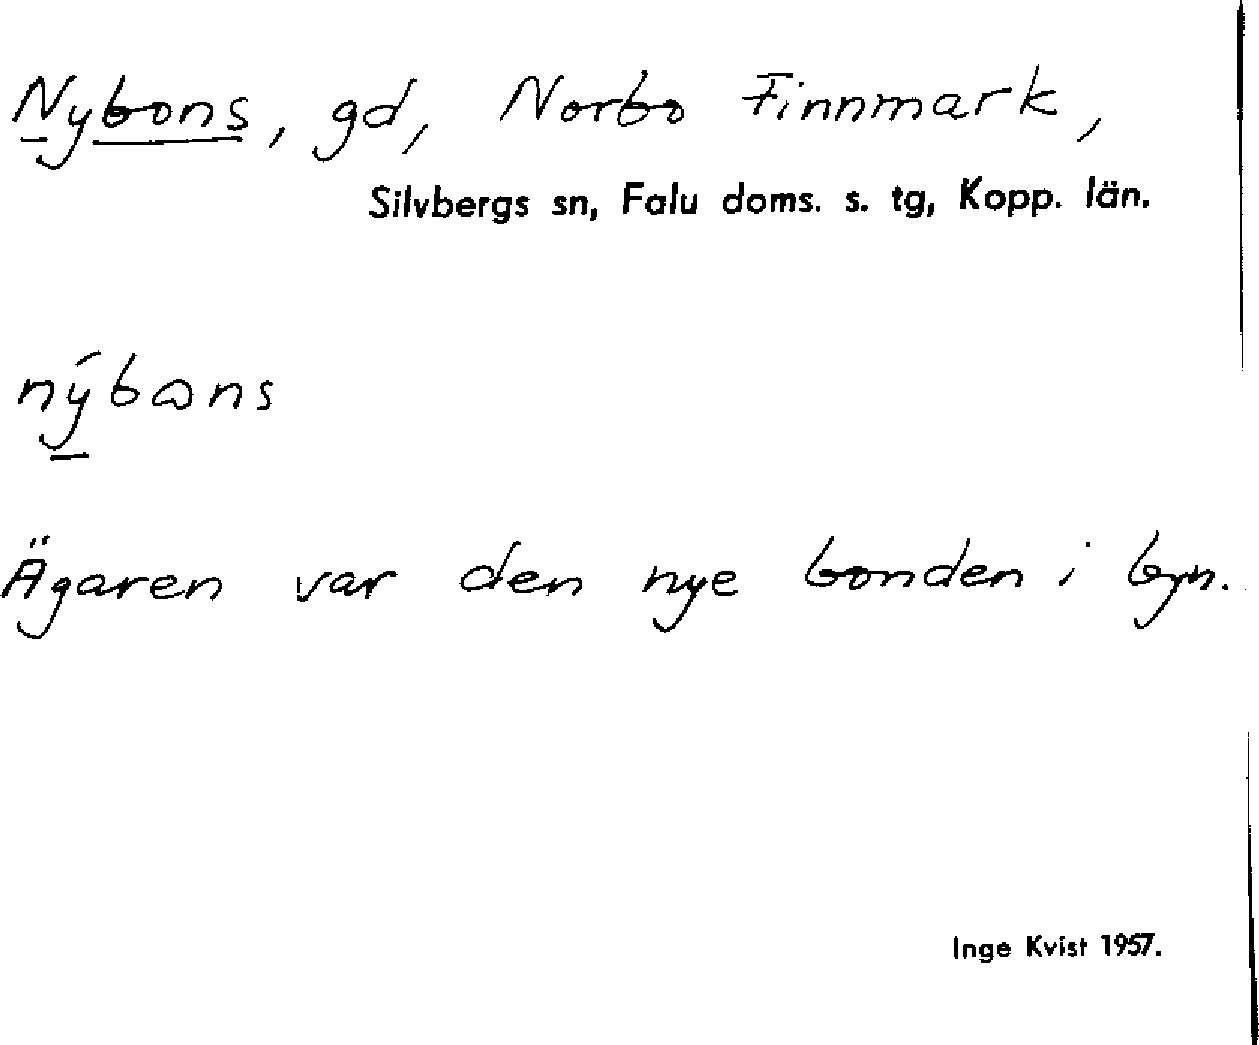 Nybons, gd, Norbo Finnmark,
Silvbergs sn, Falu doms. s. tg, Kopp. län.
nýbⱺns
Ägaren var den nye bonden i byn.
Inge Kvist 1957.